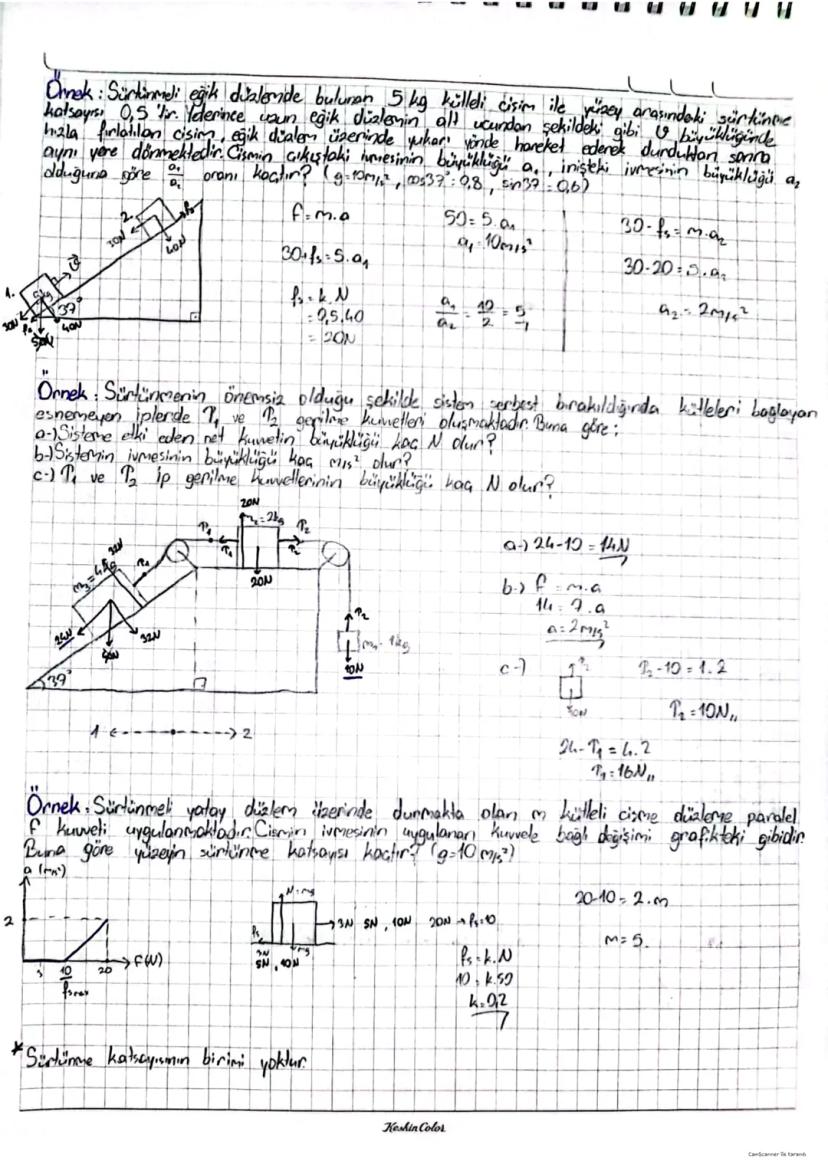 Örnek: Sürtünmeli eğik düzlemde bulunan 5 kg kütleli cisim ile yüzey arasındaki sürtünme
katsayısı 0,5'tir. Yeterince uzun eğik düzlemin alt ucundan şekildeki gibi υ büyüklüğünde
hızla fırlatılan cisim, eğik düzlem üzerinde yukarı yönde hareket ederek durduktan sonra
aynı yere dönmektedir. Cismin çıkıştaki ivmesinin büyüklüğü a₁, inişteki ivmesinin büyüklüğü a₂
olduğuna göre a₁/a₂ oranı kaçtır? (g=10m/s², cos37°=0,8, sin37=0,6)
2.
fs
30N
40N
1.
5kg
υ
37°
30N
fs
50N
40N
f=m.a
30+fs=5.a₁
fs=k.N
=0,5.40
=20N
50=5.a₁
a₁=10m/s²
a₁/a₂=10/2=5/1
30-fs=m.a₂
30-20=5.a₂
a₂=2m/s²
Örnek: Sürtünmenin önemsiz olduğu şekilde sistem serbest bırakıldığında kütleleri bağlayan
esnemeyen iplerde T₁ ve T₂ gerilme kuvvetleri oluşmaktadır. Buna göre;
a-) Sisteme etki eden net kuvvetin büyüklüğü kaç N olur?
b-) Sistemin ivmesinin büyüklüğü kaç m/s² olur?
c-) T₁ ve T₂ ip gerilme kuvvetlerinin büyüklüğü kaç N olur?
20N
m₂=2kg
T₁
T₁
T₂
T₂
20N
32N
T₁
m₃=4kg
24N
32N
T₂
m₁=1kg
10N
39°
1 <----->2
a-) 24-10=14N
b-) f=m.a
14=7.a
a=2m/s²
c-)
T₂
10N
T₂-10=1.2
T₂=10N,,
24-T₁=4.2
T₁=16N,,
Örnek: Sürtünmeli yatay düzlem üzerinde durmakta olan m kütleli cisme düzleme paralel
f kuvveti uygulanmaktadır. Cismin ivmesinin uygulanan kuvvete bağlı değişimi grafikteki gibidir.
Buna göre yüzeyin sürtünme katsayısı kaçtır? (g=10m/s²)
a (m/s²)
2
10
20
F(N)
fsmax
N=mg
3N 5N, 10N 20N → fs=10
fs
3N
5N, 10N
mg
fs=k.N
10=k.50
k=0,2
20-10=2.m
m=5.
* Sürtünme katsayısının birimi yoktur.
Keskin Color
CamScanner ile tarandı